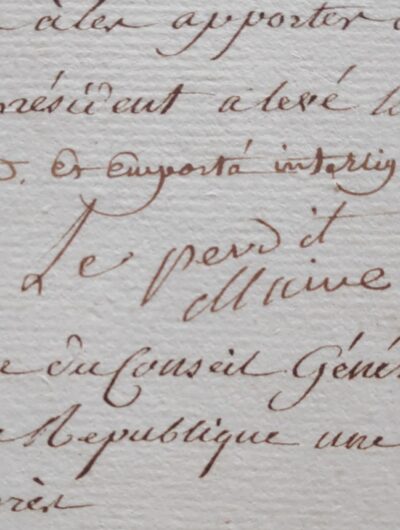 à les apporter
président a levé
et emporté interlig
Le perdit
Maire
du Conseil Géné
République une